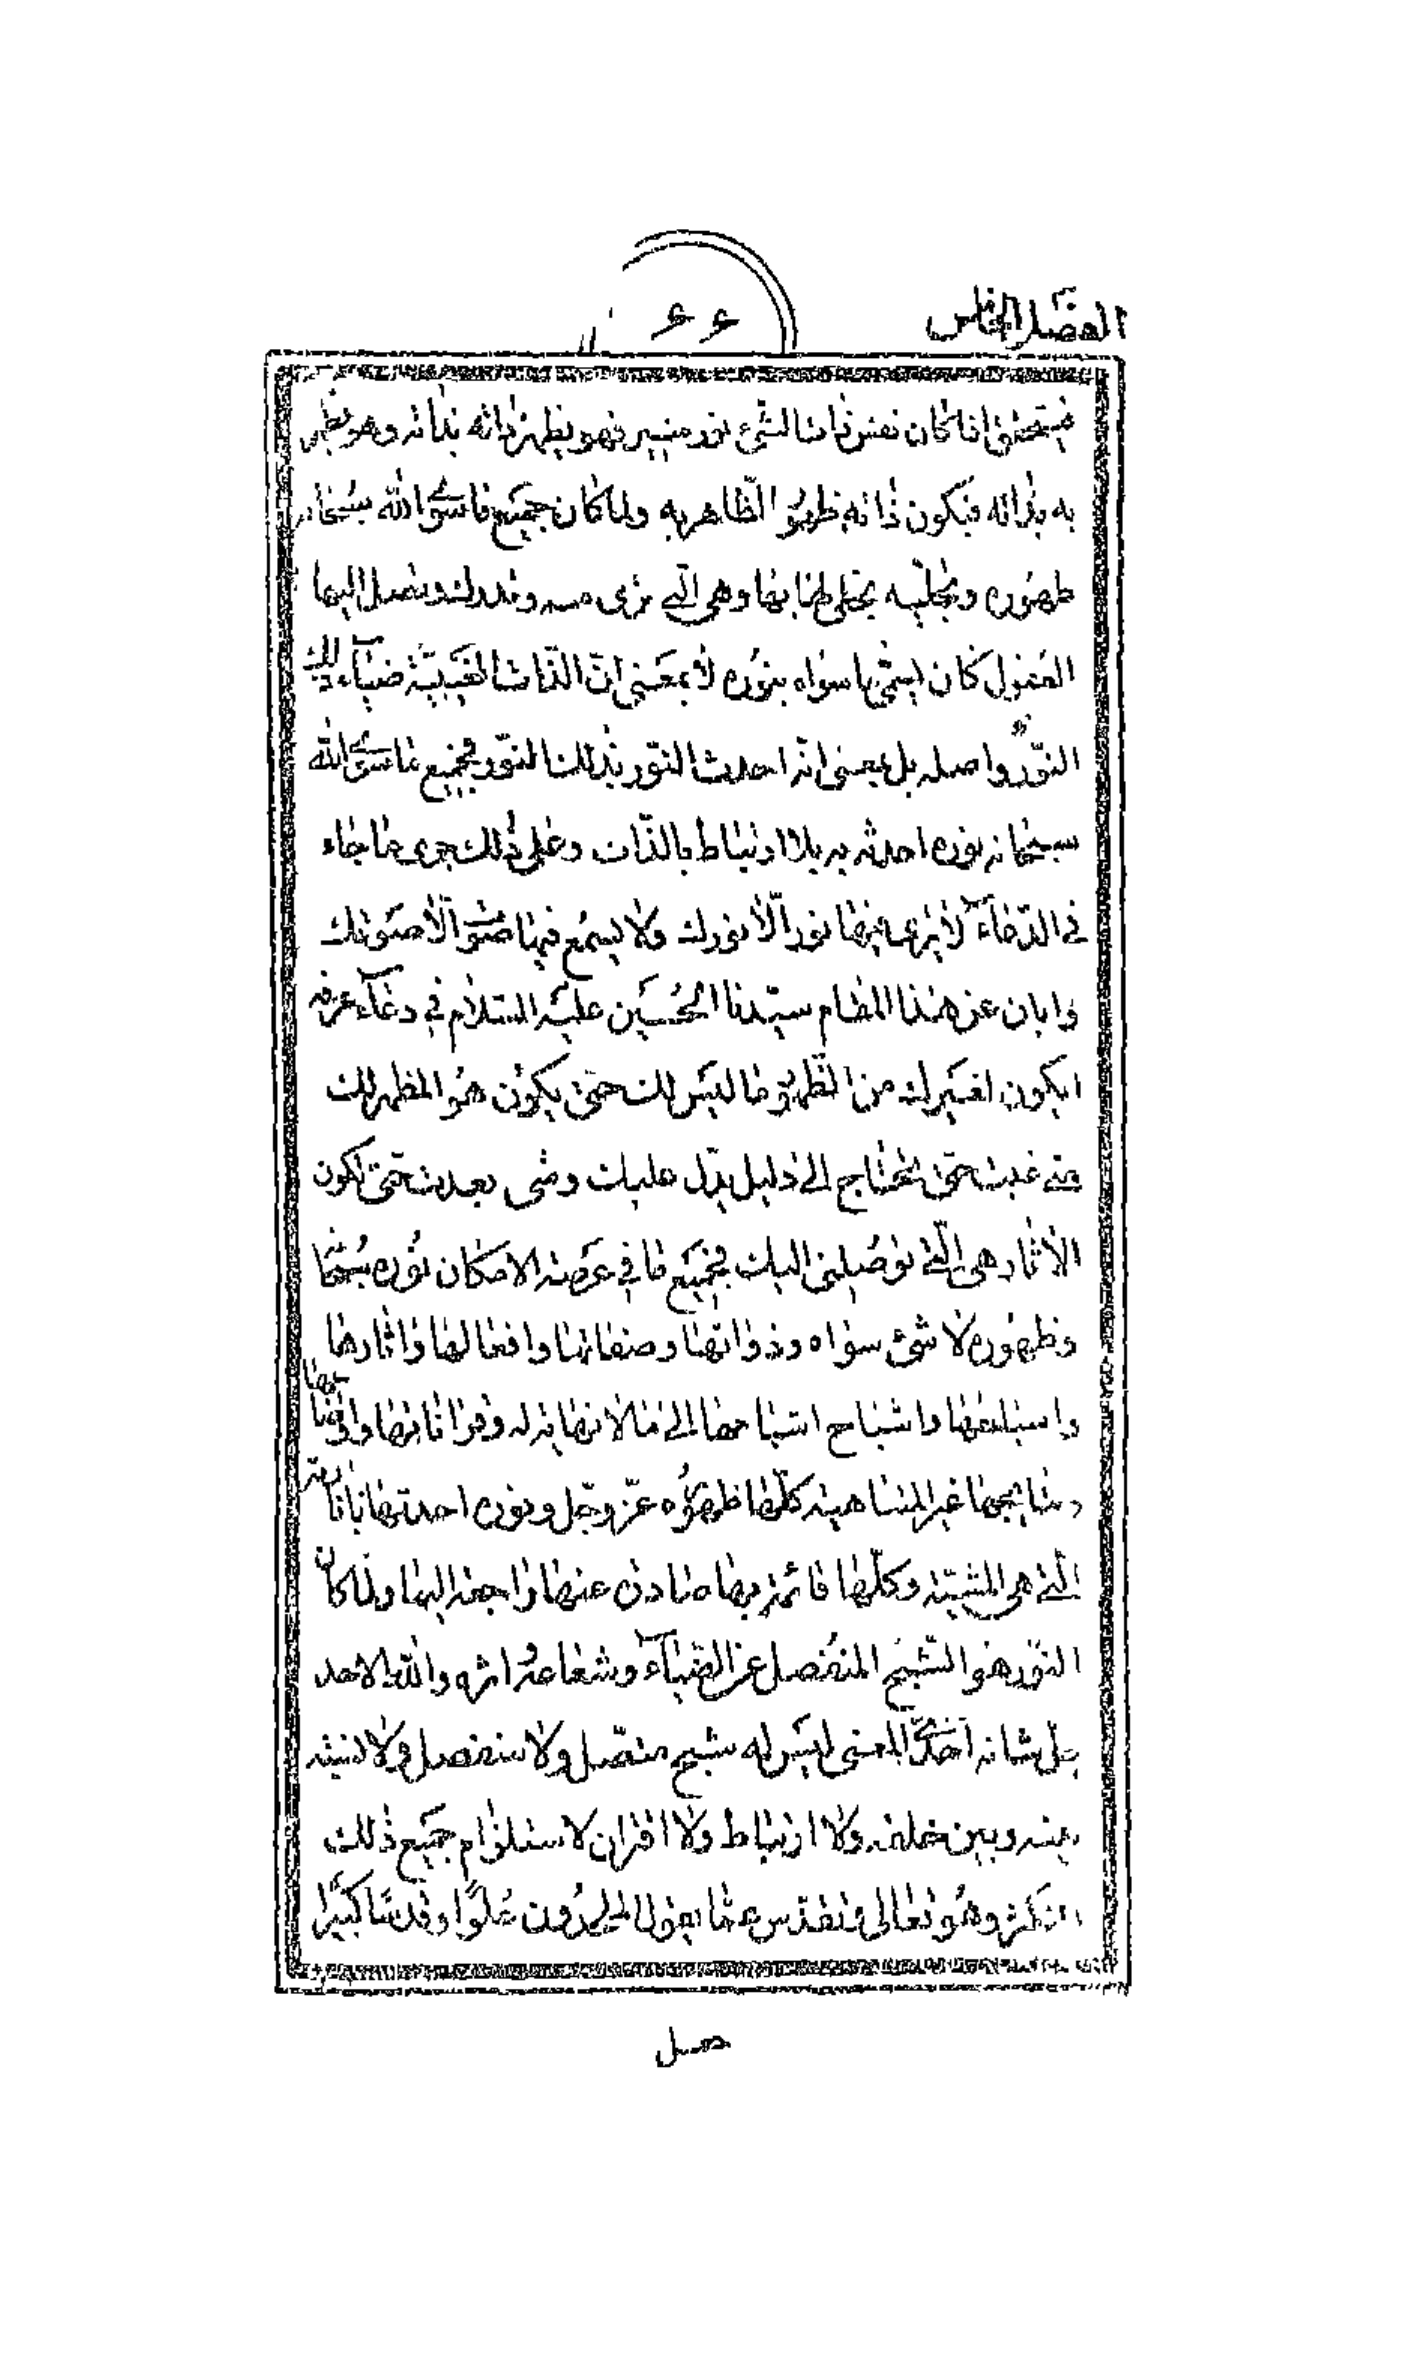 الفصل الخامس
۶۶
فيتحقق اذا كان نفس ذات الشيء نور منير فهو يظهر ذاته بذاته وهو يظهر
به بذاته فيكون ذاته ظهور الظاهر به ولما كان جميع ما سوى الله سبحانه
ظهوره وتجليه تجلى لها بها وهي التي ترى منه وتدرك وتصل اليها
العقول كان اسم ما سواه بنوره لا بمعنى ان الذات الغيبية ضياء لذلك
النور واصله بل بمعنى انه احدث النور بذلك النور فجميع ما سوى الله
سبحانه نوره احدثه به بلا ارتباط بالذات وعلى ذلك جرى ما جاء
في الدعاء لا يرى فيها نور الا نورك ولا يسمع فيها صوت الا صوتك
وابان عن هذا المقام سيدنا الحسين عليه السلام في دعاء عرفه
ايكون لغيرك من الظهور ما ليس لك حتى يكون هو المظهر لك
متى غبت حتى تحتاج الى دليل يدل عليك ومتى بعدت حتى تكون
الاثار هي التي توصلني اليك فجميع ما في عرصة الامكان نوره سبحانه
وظهوره لا شيء سواه وذواتها وصفاتها وافعالها واثارها
واشباحها واشباح اشباحها الى ما لا نهاية له وقراناتها واوضاعها
ونتايجها غير المتناهية كلها ظهوره عز وجل ونوره احدثها بارادته
التي هي المشية وكلها قائمة بها صادرة عنها راجعة اليها ولما كان
النور هو الشبح المنفصل عن الضياء وشعاعه واثره والله الاحد
جل شانه احدي المعنى ليس له شبح متصل ولا منفصل ولا نسبة
بينه وبين خلقه ولا ارتباط ولا اقتران لاستلزام جميع ذلك
الكثرة وهو تعالى وتقدس عما يقول الملحدون علوا وقدسا كبيرا